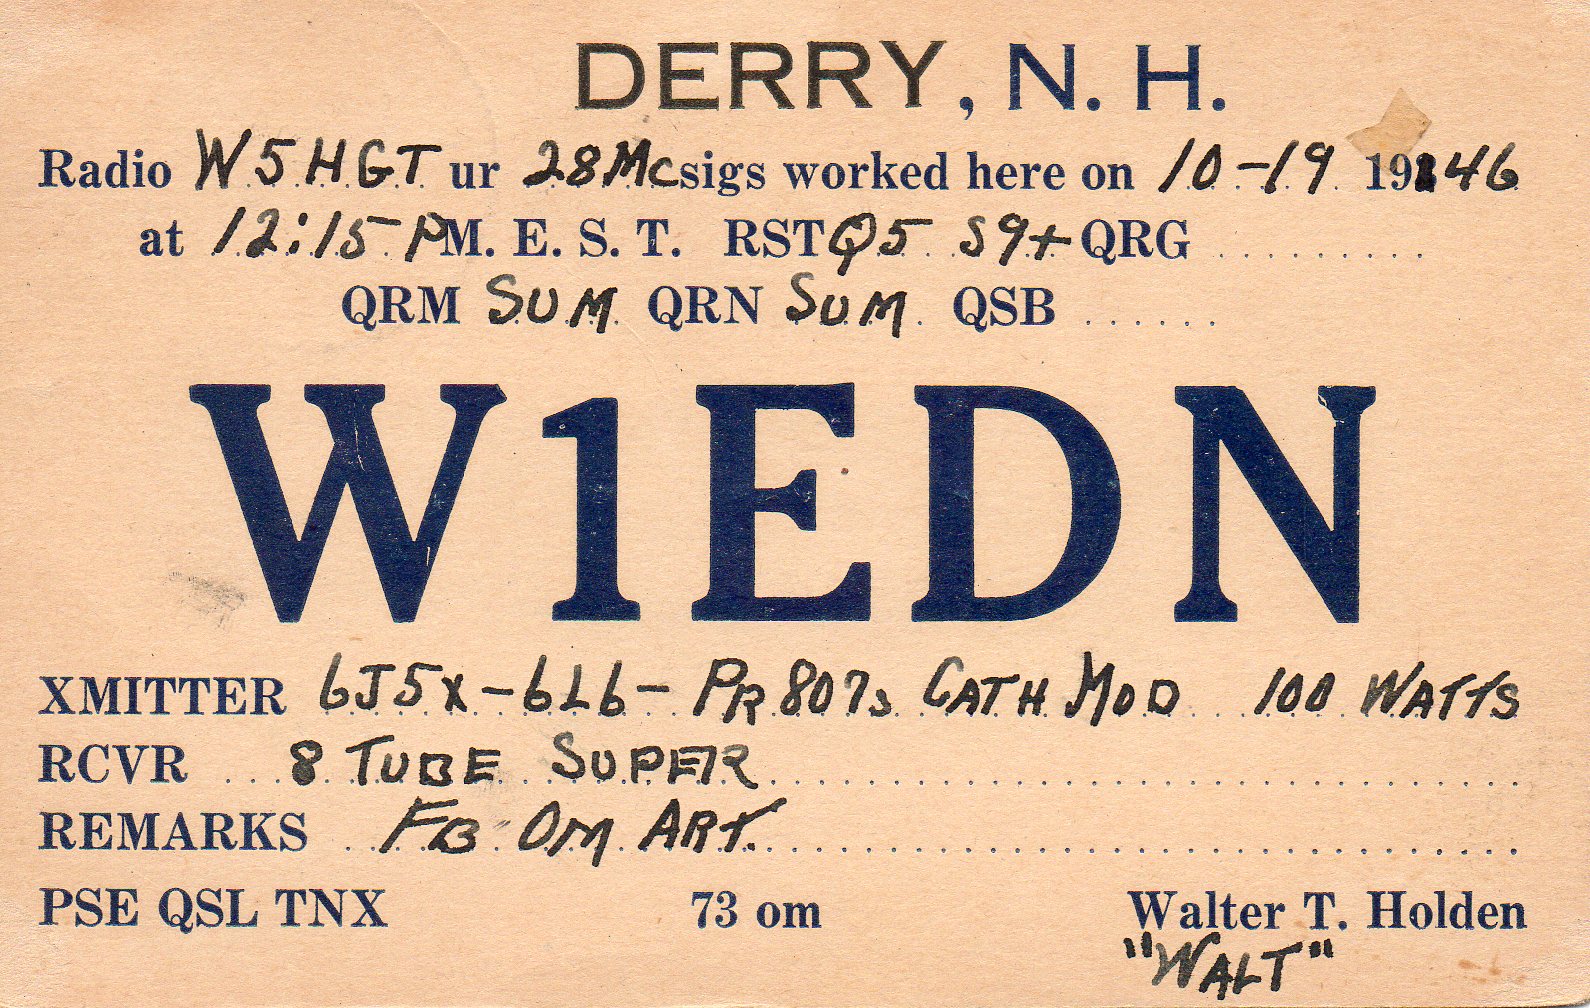 DERRY, N. H.
Radio W5HGT ur 28Mc sigs worked here on 10-19 1946
at 12:15 PM. E. S. T. RST Q5 S9+ QRG
QRM SUM QRN SUM QSB
W1EDN
XMITTER 6J5X-6L6- PR 807s CATH MOD 100 WATTS
RCVR 8 TUBE SUPER
REMARKS FB OM ART.
PSE QSL TNX 73 om Walter T. Holden
"WALT"